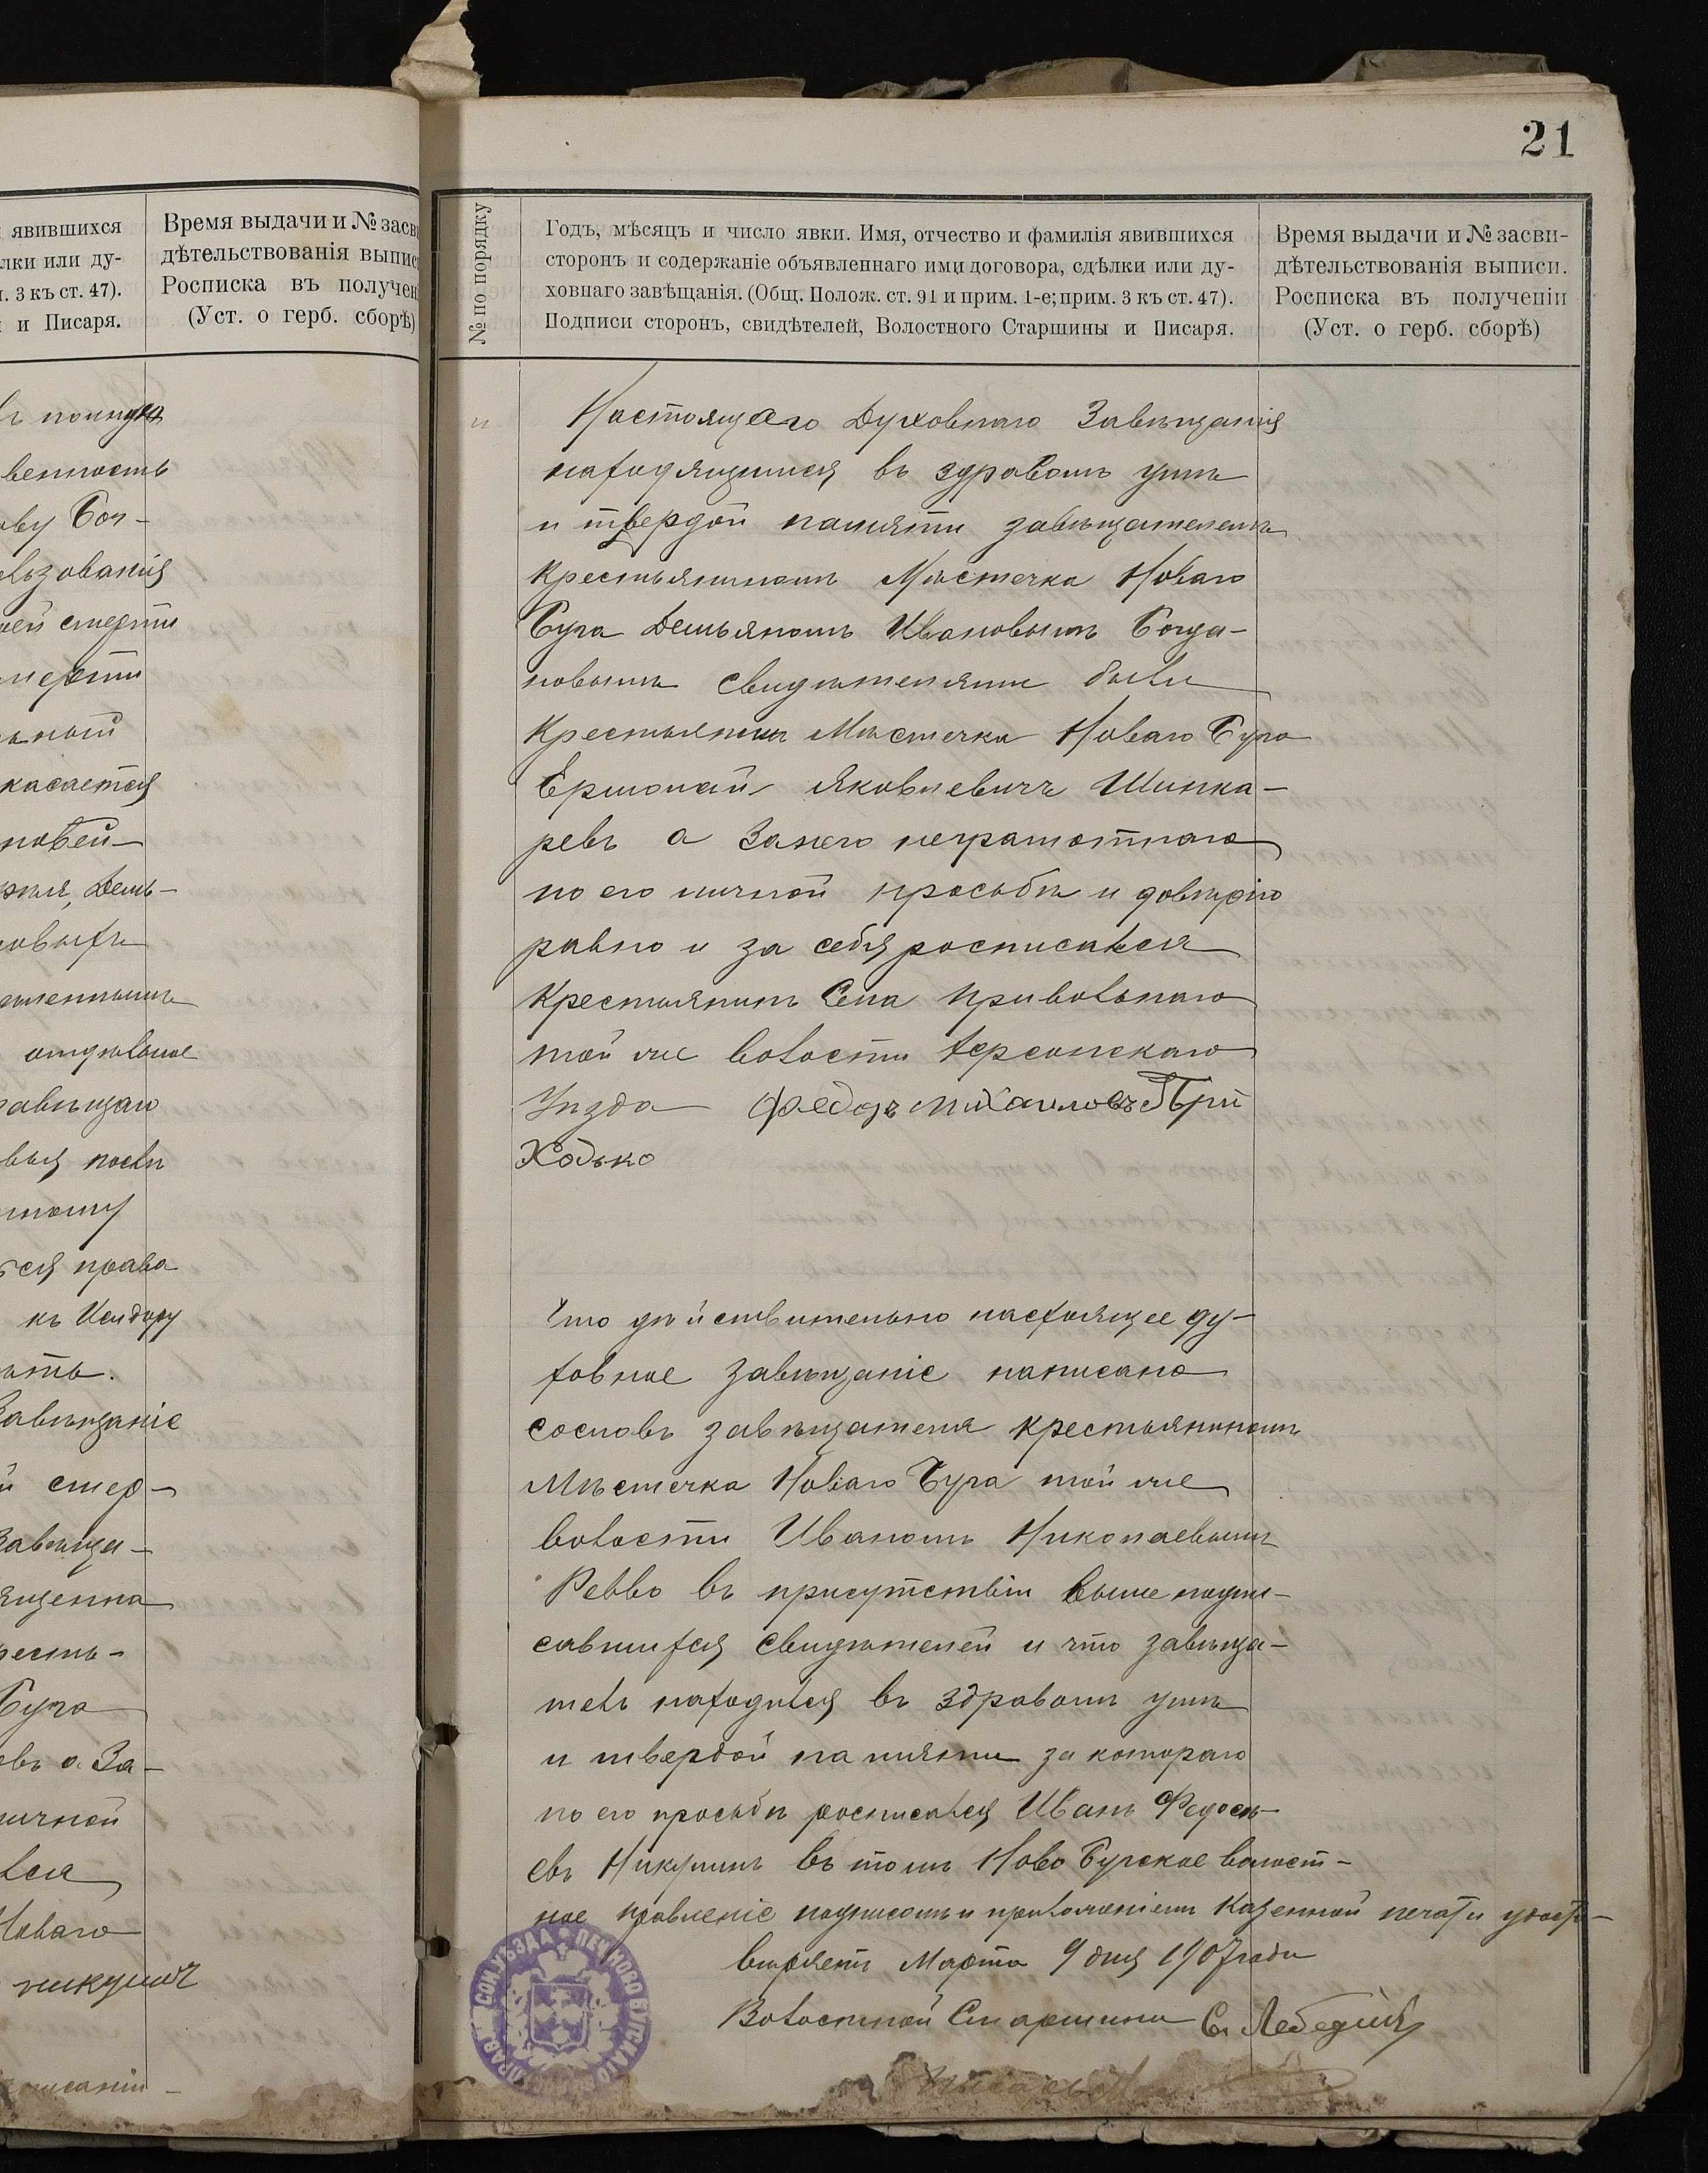 явившихся
лки или ду-
. 3 къ ст. 47).
и Писаря.
Время выдачи и № засви
дѣтельствованія выпис
Росписка въ получен
(Уст. о герб. сборѣ)
венность
ову Бог-
ользованія
ей смерти
мерти
касается
новей
Демь-
овыхъ
отдѣльное
завѣщаю
выя послѣ
ся права
къ Исидору
ать.
Завѣщаніе
й смер-
Завѣща-
ященна
ресть-
Буга
евъ а За-
личной
лся
Новаго
никулинъ
писаніи
21
№ по порядку
Годъ, мѣсяцъ и число явки. Имя, отчество и фамилія явившихся
сторонъ и содержаніе объявленнаго ими договора, сдѣлки или ду-
ховнаго завѣщанія. (Общ. Полож. ст. 91 и прим. 1-е; прим. 3 къ ст. 47).
Подписи сторонъ, свидѣтелей, Волостного Старшины и Писаря.
Время выдачи и № засви-
дѣтельствованія выписи.
Росписка въ полученіи
(Уст. о герб. сборѣ)
Настоящаго Духовнаго Завѣщанія
находящимся въ здравомъ умѣ
и твердой памяти завѣщателемъ
Крестьяниномъ Мѣстечка Новаго
Буга Демьяномъ Ивановымъ Богда-
новымъ Свидѣтелями были
Крестьянинъ Мѣстечка Новаго Буга
Ермолай Яковлевичъ Шинка-
ревъ а Занего неграмотнаго
по его личной просьбѣ и довѣрію
равно и за себя росписался
Крестьянинъ Села Привольнаго
той же волости Херсонскаго
Уѣзда Федоръ михаиловъ При
Ходько
Что дѣйствительно настоящее ду-
ховное завѣщаніе написано
сословъ завѣщателя крестьяниномъ
Мѣстечка Новаго Буга той же
волости Иваномъ Николаевымъ
Ревво въ присутствіи выше подпи-
савшихся Свидѣтелей и что завѣща-
тель находился въ здравомъ умѣ
и твердой памяти за котораго
по его просьбѣ росписался Иванъ Федосѣ-
евъ Никулинъ въ томъ Ново Бугское волост-
ное правленіе подписомъ и приложеніемъ Казенной печати удосто-
вѣряетъ Марта 9 дня 1907 года
Волостной Старшина Св. Лебедевъ